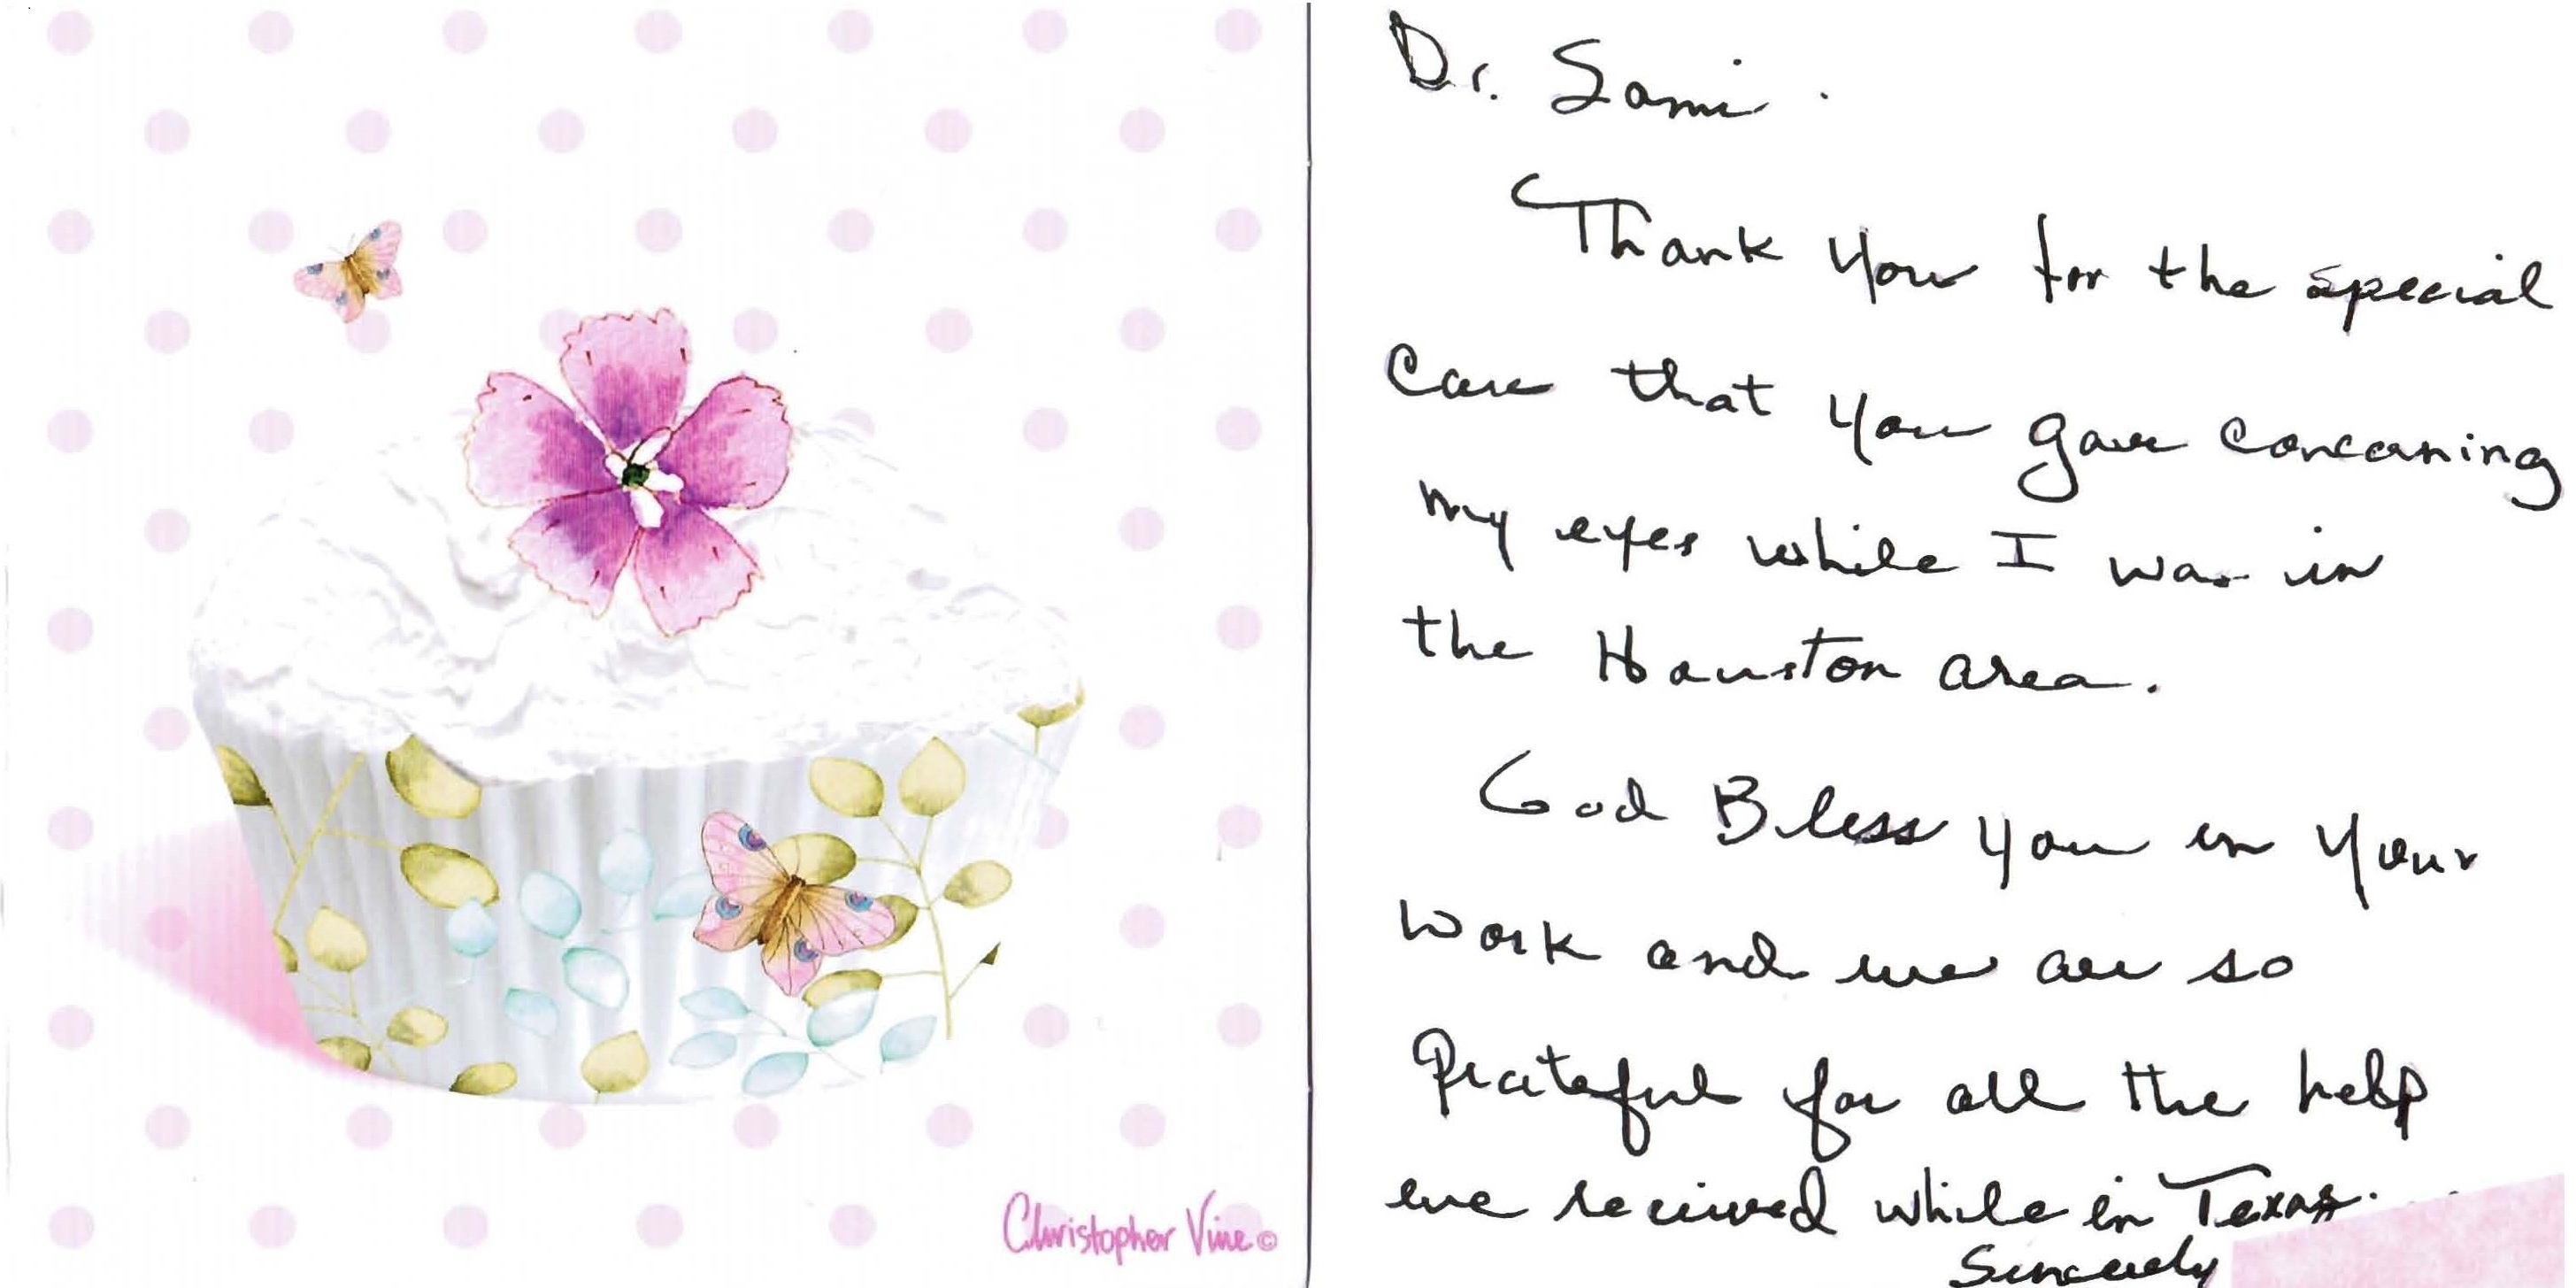 Christopher Vine ©
Dr. Sami
Thank you for the special
care that you gave concerning
my eyes while I was in
the Houston area.
God Bless you in your
work and we are so
grateful for all the help
we received while in Texas.
Sincerely